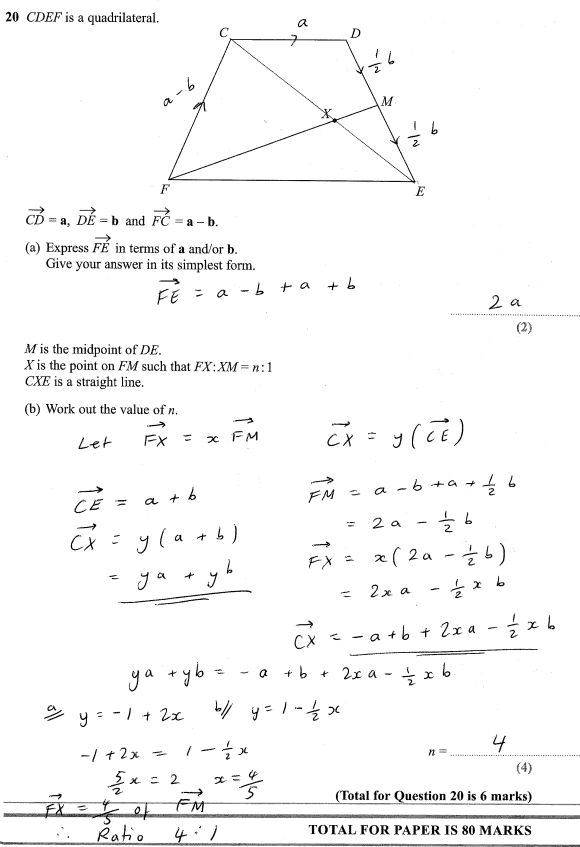 20 CDEF is a quadrilateral.
a
C
D
1/2 b
a - b
M
X
1/2 b
F
E
CD = a, DE = b and FC = a – b.
(a) Express FE in terms of a and/or b.
Give your answer in its simplest form.
FE = a - b + a + b
2a
(2)
M is the midpoint of DE.
X is the point on FM such that FX : XM = n : 1
CXE is a straight line.
(b) Work out the value of n.
Let FX = x FM
CX = y (CE)
CE = a + b
CX = y (a + b)
= ya + yb
FM = a - b + a + 1/2 b
= 2a - 1/2 b
FX = x (2a - 1/2 b)
= 2xa - 1/2 x b
CX = -a + b + 2xa - 1/2 x b
ya + yb = -a + b + 2xa - 1/2 x b
a// y = -1 + 2x b// y = 1 - 1/2 x
-1 + 2x = 1 - 1/2 x
5/2 x = 2 x = 4/5
n = 4
(4)
FX = 4/5 of FM
∴ Ratio 4 : 1
(Total for Question 20 is 6 marks)
TOTAL FOR PAPER IS 80 MARKS